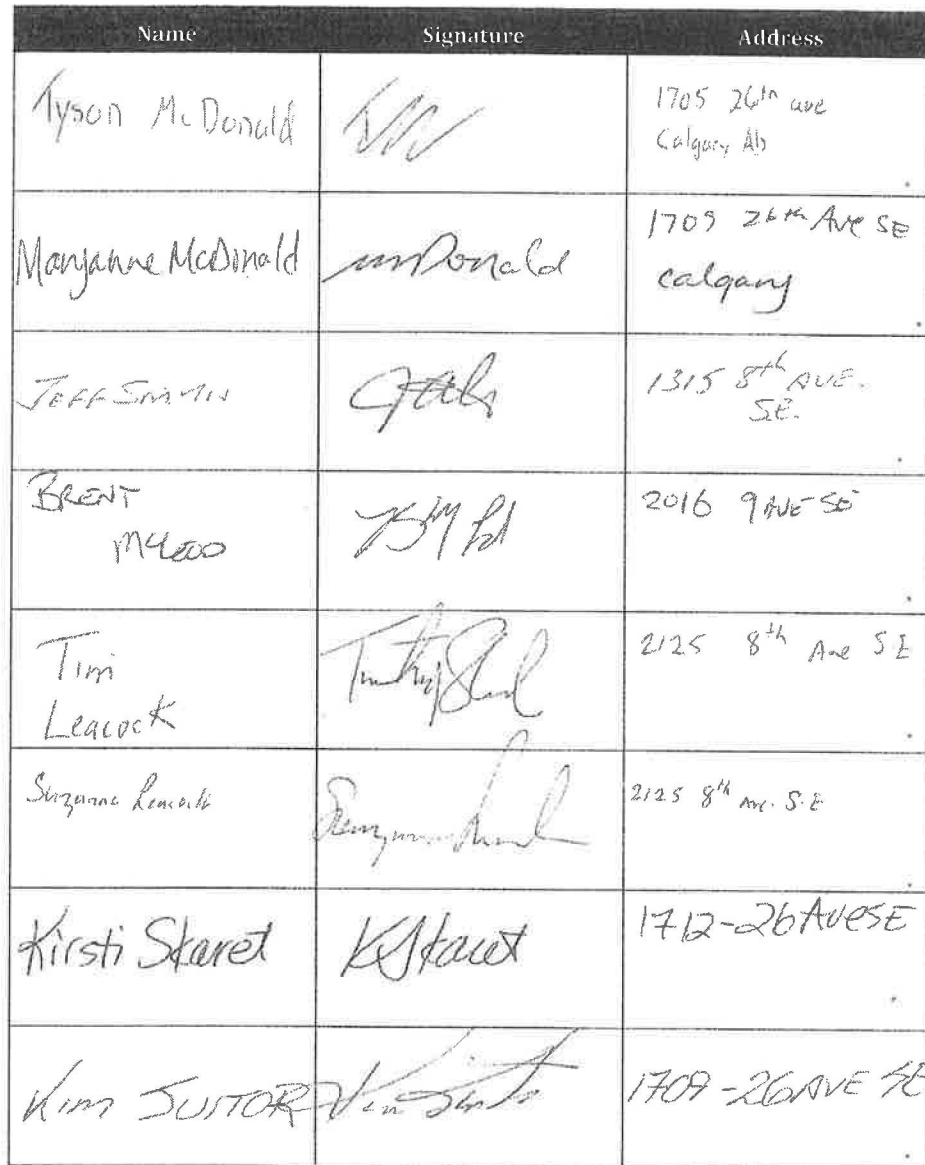 Name Signature Address
Tyson McDonald 1705 26th ave
Calgary Ab
Maryanne McDonald mDonald 1709 26th Ave SE
Calgary
JEFF 1315 8th AVE.
SE.
BRENT 2016 9 AVE SE
McLEOD
Tim 2125 8th Ave S.E
Leacock
Suzanne Leacock 2125 8th Ave. S.E
Kirsti Skaret KSkaret 1712-26 Ave SE
Kim SUITOR 1709-26 AVE SE